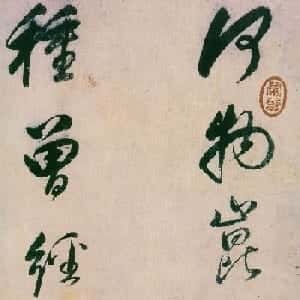 何物崑
種曾經